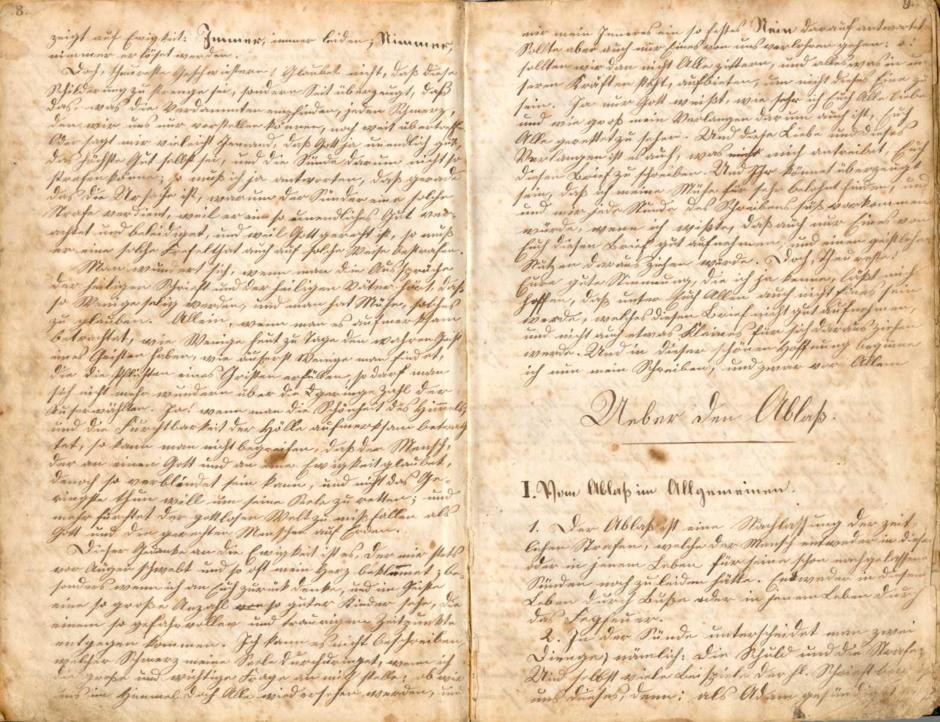 8.
zeigt auf Ewigkeit: Immer, immer leiden; Nimmer,
nimmer erlöset werden.
Doch, theuerste Geschwistern! Glaubet nicht, daß diese
Schilderung zu strenge sei, sondern seit überzeugt, daß
das, was die Verdammten empfinden, jeden Schmerz,
den wir uns nur vorstellen können, noch weit übertreffe.
Oder sagt mir vieleicht jemand, daß Gott ja unendlich gut,
das höchste Gut selbst sei, und die Sünde darum nicht so
strafen könne; so muß ich ja antworten, daß gerade
das die Ursache ist, warum der Sünder eine solche
Strafe verdient, weil er ein so unendliches Gut ver-
achtet und beleidiget, und weil Gott gerecht ist, so muß
er eine solche Frefelthat auch auf solche Weise bestrafen.
Man wundert sich, wenn man die Aussprüche
der heiligen Schrift und der heiligen Väter hört, daß
so Wenige selig werden, und man hat Mühe, solches
zu glauben. Allein, wenn man es aufmerksam
betrachtet, wie Wenige heut zu Tage den wahren Geist
eines Christen haben, wie äusserst Wenige man findet,
die die Pflichten eines Christen erfüllen, so darf man
sich nicht mehr wundern über die geringe Zahl der
Auserwählten. Ja! wenn man die Schönheit des Himmels
und die Furchtbarkeit der Hölle aufmerksam betrach-
tet, so kann man nicht begreifen, daß der Mensch,
der an einen Gott und an eine Ewigkeit glaubet,
denoch so verblendet sein kann, und nicht das Ge-
ringste thun will um seine Seele zu retten; und
mehr fürchtet der gottlosen Welt zu mißfallen als
Gott und den gerechten Menschen auf Erden.
Dieser Gedanke an die Ewigkeit ist es, der mir stets
vor Augen schwebt und so oft mein Herz beklemmet, be-
sonders wenn ich an Euch zurück denke, und im Geiste
eine so große Anzahl so guter Kinder sehe, die
einem so gefahrvollen und traurigen Zeitpunkte
entgegen kommen. Ich kann es nicht beschreiben,
welcher Schmerz meine Seele durchdringet, wenn ich
die große und wichtige Frage an mich stelle: ob wir
uns im Himmel doch Alle wiedersehen werden, und
9.
mir mein Inneres ein so festes Nein darauf antwortet.
Sollte aber auch nur Eines von uns verlohren gehen; o!
sollten wir dan nicht Alle zittern, und alles, was in un-
seren Kräften steht, aufbieten, um nicht dieses Eine zu
sein. Ja nur Gott weißt, wie sehr ich Euch Alle liebe
und wie groß mein Verlangen darum auch ist, Euch
Alle gerettet zu sehen. Und diese Liebe und dieses
Verlangen ist es auch, was mich antreibet, Euch
diesen Brief zu schreiben. Und Ihr könnet überzeugt
sein, daß ich meine Mühe für sehr belohnt finden, und
und mir jede Stunde des Schreibens süß vorkommen
würde, wenn ich wüßte, daß auch nur Eines von
Euch diesen Brief gut aufnehmen, und einen geistlichen
Nutzen daraus ziehen würde. Doch, theuerste!
Eure gute Stimmung, die ich ja kenne, läßt mich
hoffen, daß unter Euch Allen auch nicht Eines sein
werde, welches diesen Brief nicht gut aufnehmen,
und nicht auch etwas Kleines für sich daraus ziehen
werde. Und in dieser schönen Hoffnung beginne
ich nun mein Schreiben, und zwar vor Allem
Ueber den Ablaß.
I. Vom Ablaß im Allgemeinen.
1. Der Ablaß ist eine Nachlassung der zeit-
lichen Strafen, welche der Mensch entweder in diesem
oder in jenem Leben für seine schon nachgelassenen
Sünden noch zu leiden hätte. Entweder in diesem
Leben durch Buße oder in jenem Leben durch
das Fegfeuer.
2. In der Sünde unterscheidet man zwei
Dienge, nämlich: die Schuld und die Strafe.
Und selbst viele Beispiele der hl. Schrift
uns dieses, denn: als Adam gesündiget